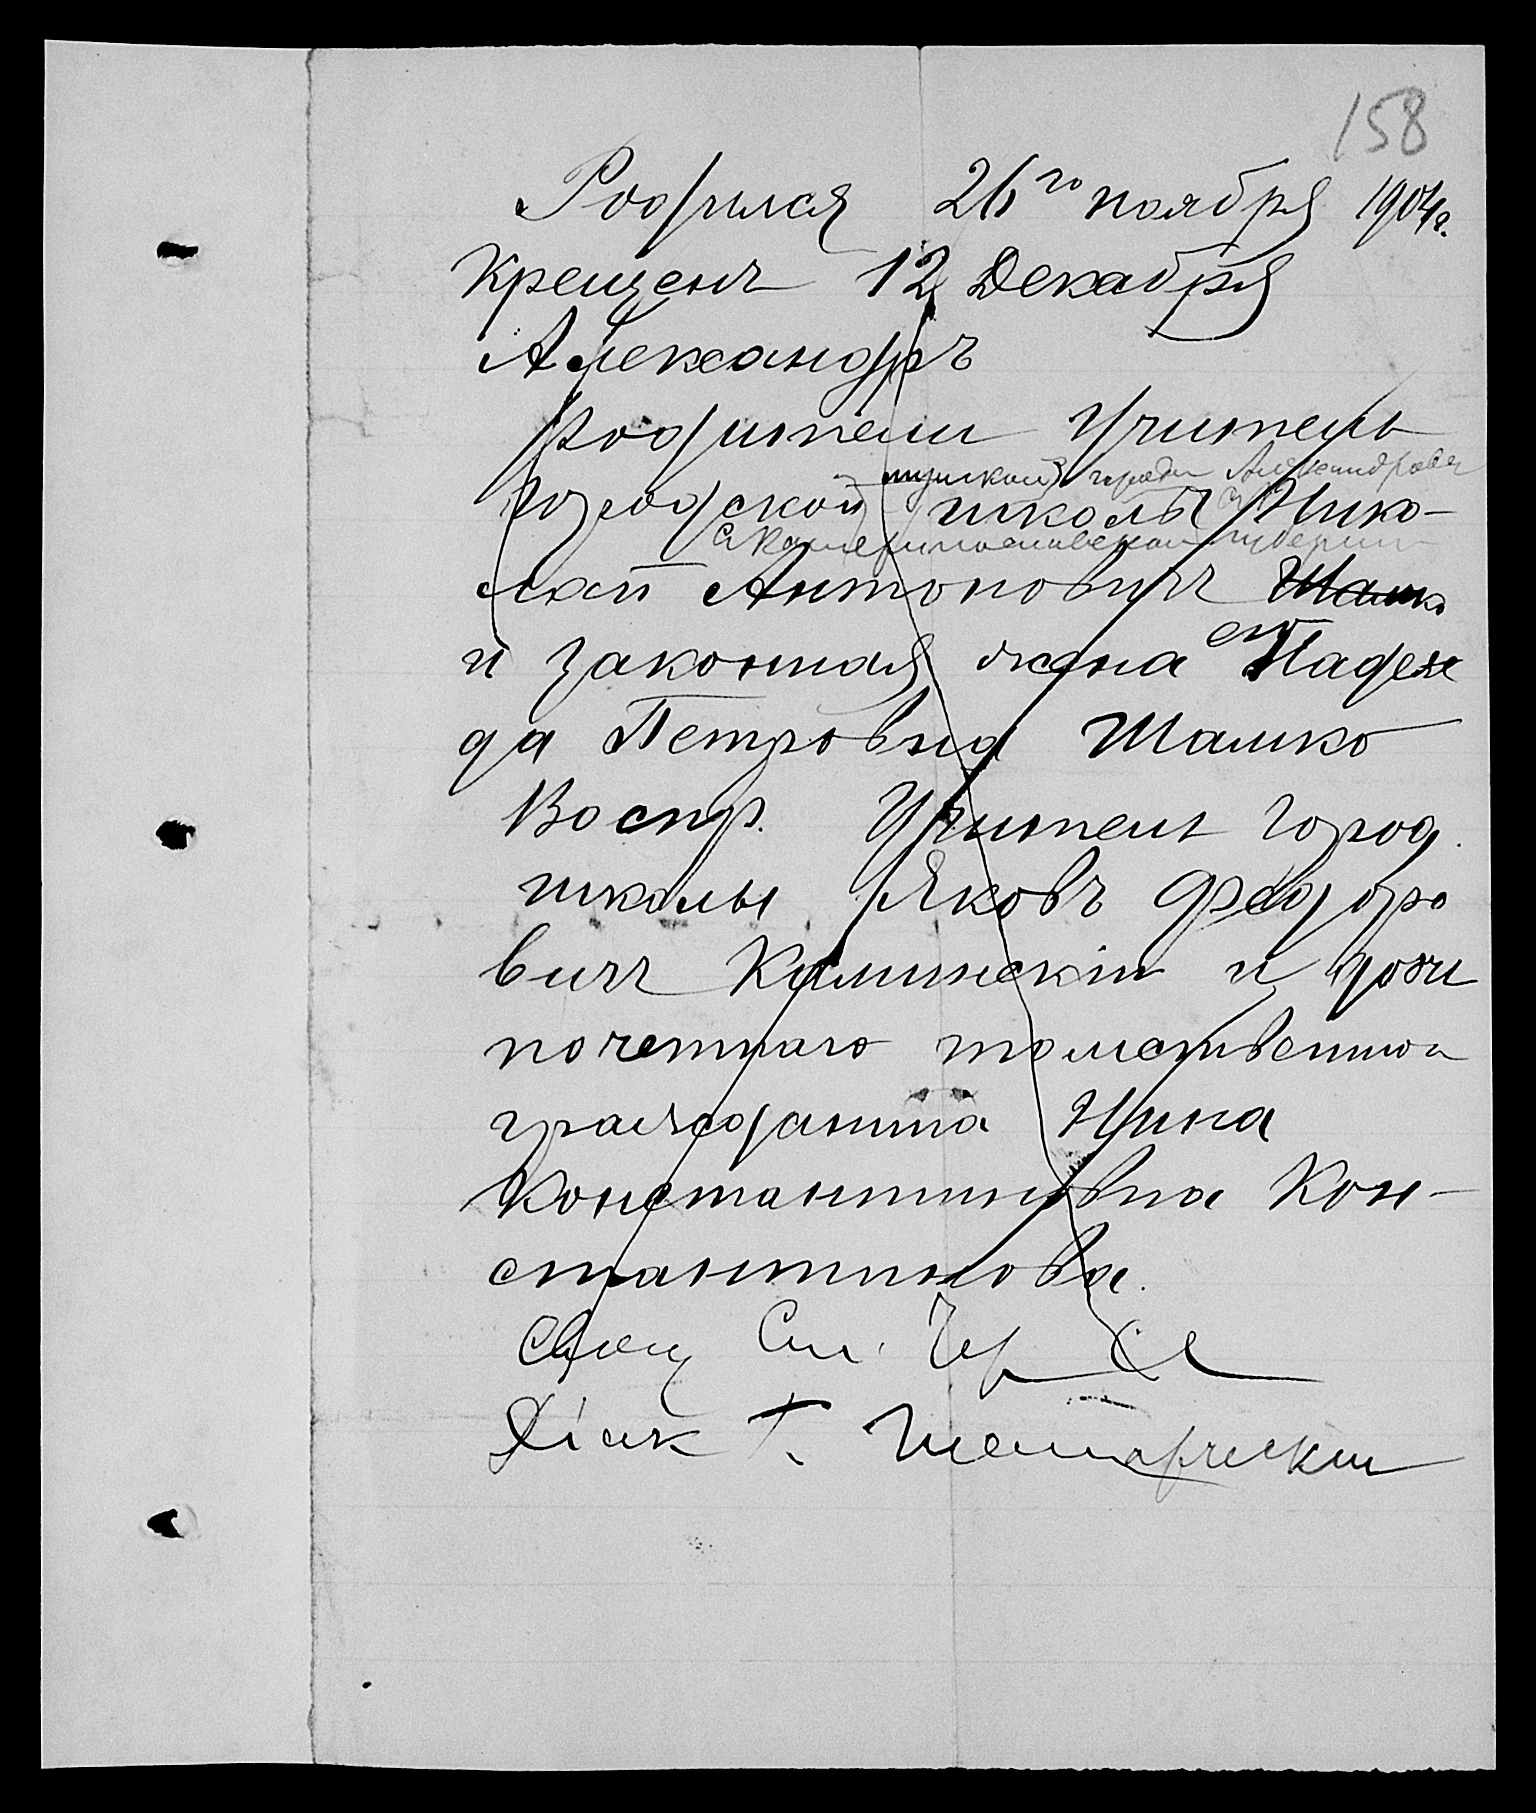 158
Родился 26го ноября 1904г.
Крещенъ 12 Декабря
Александръ
Родители Учитель
мужской города Александровск
городской школы Нико-
Екатеринославской губернии
лай Антоновичъ Шамко
и законная жена его Надеж
да Петровна Шамко
Воспр. Учитель город.
школы Яковъ Федоро
вичъ Калинскій и дочь
почетнаго потомственного
гражданина Нина
Константиновна Кон-
стантинова.
Свящ
Діак Г.